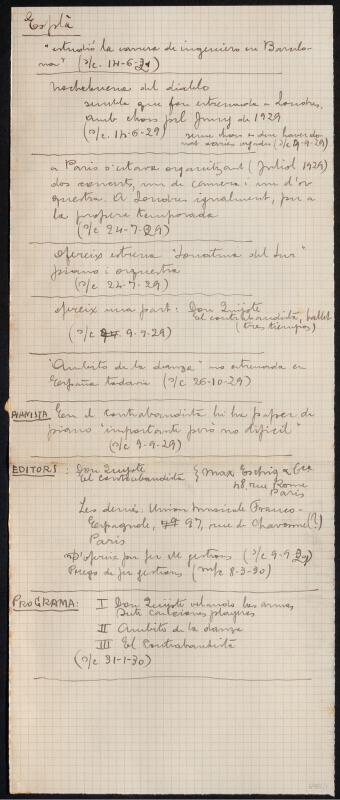 Esplà
"estudió la carrera de ingeniero en Barcelo-
na" (s/c. 14-6-29)
nochebuena del diablo
sembla que fou estrenada a Londres,
amb chors pel Juny de 1929
(s/c. 14-6-29) sense chors es deu haver do-
nat varies vegades (s/c 9-9-29)
a Paris s'estava organitzant (Juliol 1929)
dos concerts, un de camera i un d'or-
questra. A Londres igualment, per a
la propera temporada
(s/c 24-7-29)
ofereix estrena "Sonatina del Sur"
piano i orquestra
(s/c 24-7-29)
ofereix una part: Don Quijote
El contrabandista, ballet
(tres tiempos)
(s/c 9-9-29)
"Ambito de la danza" no estrenada en
España todavia (s/c 26-10-29)
PIANISTA En el contrabandista hi ha paper de
piano "important però no dificil"
(s/c 9-9-29)
EDITORS: Don Quijote
El contrabandista } Max Eschig & Cie
48, rue Rome
Paris
Les demés: Union Musicale Franco-
Espagnole, 97, rue de (?)
Paris
S'ofereix per fer ell gestions (s/c 9-9-29)
Prego de fer gestions (m/c 8-3-30)
PROGRAMA: I Don Quijote velando las armas
Siete canciones playeras
II Ambito de la danza
III El Contrabandista
(s/c 31-1-30)